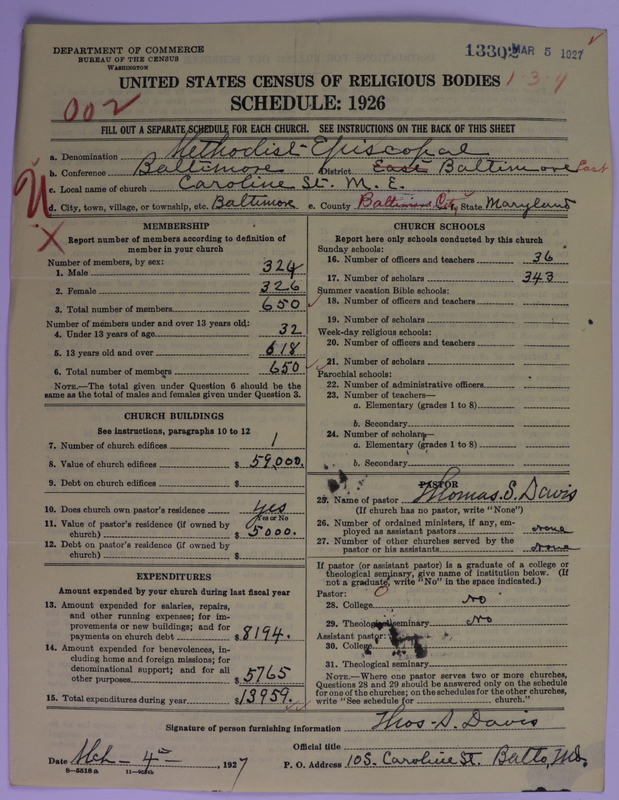 DEPARTMENT OF COMMERCE
BUREAU OF THE CENSUS
WASHINGTON
13302 MAR 5 1927
1-3-4
UNITED STATES CENSUS OF RELIGIOUS BODIES
SCHEDULE: 1926
002
FILL OUT A SEPARATE SCHEDULE FOR EACH CHURCH. SEE INSTRUCTIONS ON THE BACK OF THIS SHEET
a. Denomination Methodist Episcopal
b. Conference Baltimore District East Baltimore East
c. Local name of church Caroline St. M. E.
d. City, town, village, or township, etc. Baltimore e. County Baltimore City f. State Maryland
MEMBERSHIP
Report number of members according to definition of
member in your church
Number of members, by sex:
1. Male 324
2. Female 326
3. Total number of members 650
Number of members under and over 13 years old:
4. Under 13 years of age 32
5. 13 years old and over 618
6. Total number of members 650
NOTE.—The total given under Question 6 should be the
same as the total of males and females given under Question 3.
CHURCH BUILDINGS
See instructions, paragraphs 10 to 12
7. Number of church edifices 1
8. Value of church edifices $ 59,000.
9. Debt on church edifices $
10. Does church own pastor's residence yes
Yes or No
11. Value of pastor's residence (if owned by
church) $ 5000.
12. Debt on pastor's residence (if owned by
church) $
EXPENDITURES
Amount expended by your church during last fiscal year
13. Amount expended for salaries, repairs,
and other running expenses; for im-
provements or new buildings; and for
payments on church debt $ 8194.
14. Amount expended for benevolences, in-
cluding home and foreign missions; for
denominational support; and for all
other purposes $ 5765
15. Total expenditures during year $ 13959.
CHURCH SCHOOLS
Report here only schools conducted by this church
Sunday schools:
16. Number of officers and teachers 36
17. Number of scholars 343
Summer vacation Bible schools:
18. Number of officers and teachers
19. Number of scholars
Week-day religious schools:
20. Number of officers and teachers
21. Number of scholars
Parochial schools:
22. Number of administrative officers
23. Number of teachers—
a. Elementary (grades 1 to 8)
b. Secondary
24. Number of scholars—
a. Elementary (grades 1 to 8)
b. Secondary
PASTOR
25. Name of pastor Thomas. S. Davis
(If church has no pastor, write "None")
26. Number of ordained ministers, if any, em-
ployed as assistant pastors none
27. Number of other churches served by the
pastor or his assistants none
If pastor (or assistant pastor) is a graduate of a college or
theological seminary, give name of institution below. (If
not a graduate, write "No" in the space indicated.)
Pastor:
28. College No
29. Theological seminary No
Assistant pastor:
30. College
31. Theological seminary
NOTE.—Where one pastor serves two or more churches,
Questions 28 and 29 should be answered only on the schedule
for one of the churches; on the schedules for the other churches,
write "See schedule for church."
Signature of person furnishing information Thos. S. Davis
Official title
Date Mch - 4 -, 1927 P. O. Address 10 S. Caroline St. Balto, Md.
8-5518a